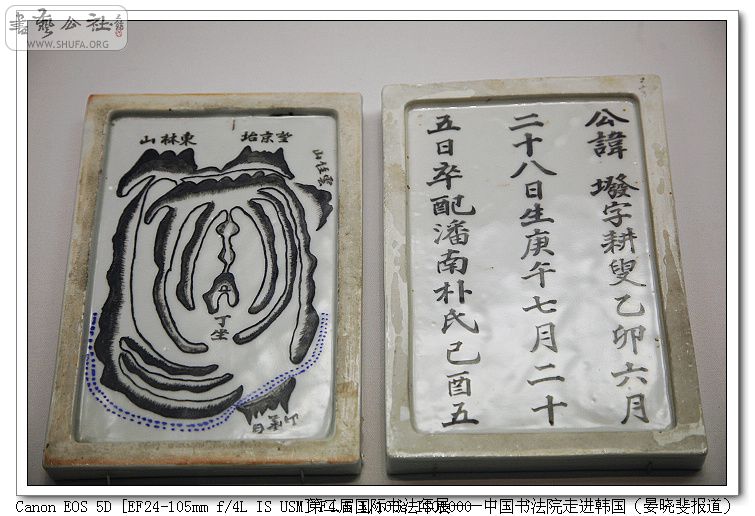 書藝公社
WWW.SHUFA.ORG
公諱墢字耕叟乙卯六月
二十八日生庚午七月二十
五日卒配潘南朴氏己酉五
望京坮
東林山
丁坐
Canon EOS 5D [EF24-105mm f/4L IS USM]
国际书法年展 中国书法院走进韩国（晏晓斐报道）